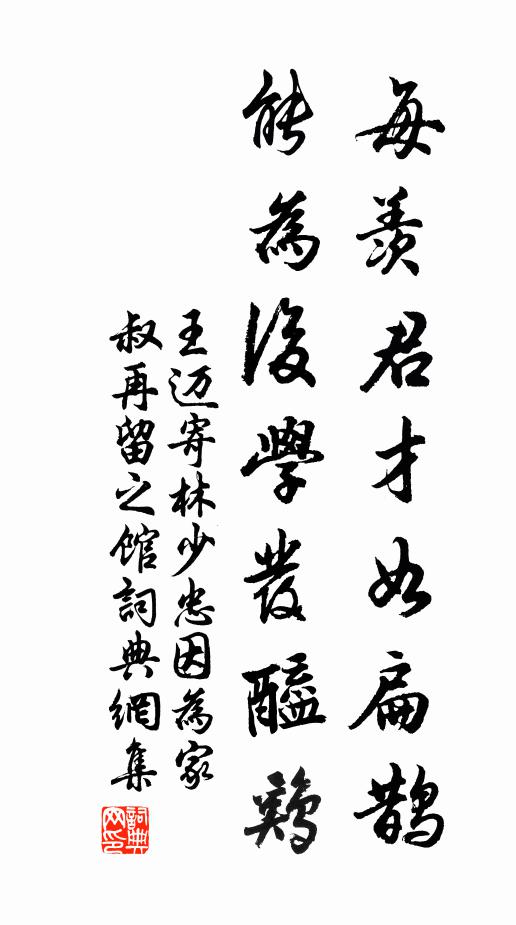 每羨君才如扁鵲
能為後學發醯鷄
王迈寄林少忠因為家
叔再留之館詞典網集
詞典网印